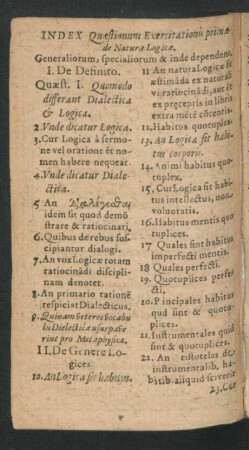 INDEX Quæstionum Exercitationis primæ
de Naturæ Logicæ.
Generaliorum, specialiorum & inde dependent.
I. De Definito.
Quæst. I. Quomodo
differant Dialectica
& Logica.
2. Vnde dicatur Logica.
3. Cur Logica à sermo-
ne vel oratione ēt no-
men habere nequeat.
4. Vnde dicatur Diale-
ctica.
5 An
idem sit quod demō-
strare & ratiocinari.
6. Quibus de rebus sus-
cipiantur dialogi.
7. An vox Logicæ totam
ratiocinādi discipli-
nam denotet.
8. An primario rationē
respiciat Dialecticus.
9. Quinam veteres vocabu
lū Dialecticæ usurpave
rint pro Metaphysica.
II. De Genere Lo-
gices
10. An Logica sit habitus.
11 An natura Logicæ sit
æstimāda ex naturali
vi ratiocinādi, aut ēt
ex præceptis in libris
extra mētē cōtentis.
12. Habitus quotuplex.
13. An Logica sit habi-
tus corporis.
14. Animi habitus quo-
tuplex.
15. Cur Logica sit habi-
tus intellectus, non
voluntatis.
16. Habitus mentis quo-
tuplices.
17 Quales sint habitus
imperfecti mentis.
18 Quales perfecti.
19. Quotuplices perfe-
cti.
20. Principales habitus
quid sint & quotu-
plices.
21. Instrumentales quid
sint & quotuplices.
22. An Aristoteles de
instrumentalib. ha-
bitib. aliquid scripserit
23. Cur